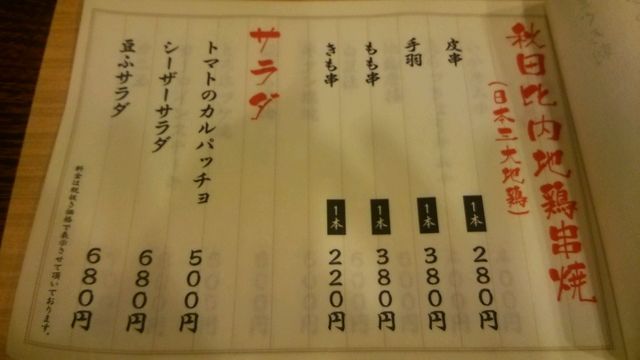 秋田比内地鶏串焼
(日本三大地鶏)
皮串 1本 280円
手羽 1本 380円
もも串 1本 380円
きも串 1本 220円
サラダ
トマトのカルパッチョ 500円
シーザーサラダ 680円
豆ふサラダ 680円
料金は税抜き価格で表示させて頂いております。